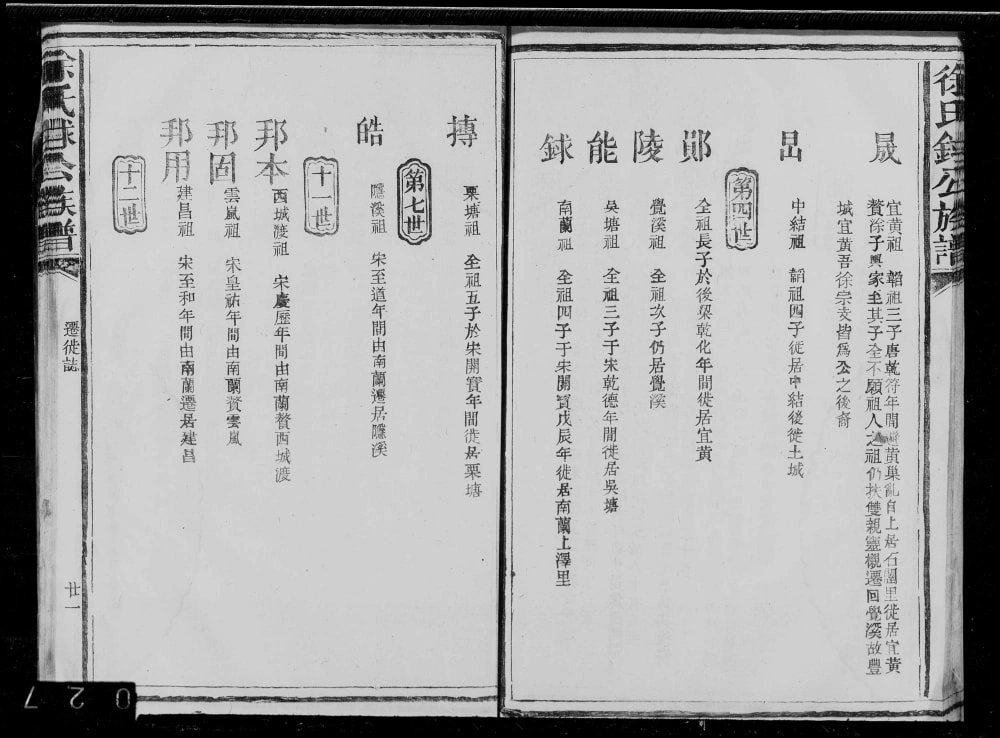 徐氏錄公族譜
晟
宜黃祖 韜祖三子唐乾符年間黃巢亂自上居石圍里徙居宜黃
贅涂子輿家至其子全不願祖人之祖仍扶雙親靈櫬遷回覺溪故豐
城宜黃吾徐宗支皆爲公之後裔
昂
中結祖 韜祖四子徙居中結後徙土城
第四世
鄖
全祖長子於後梁乾化年間徙居宜黃
陵
覺溪祖 全祖次子仍居覺溪
能
吳塘祖 全祖三子于宋乾德年間徙居吳塘
錄
南蘭祖 全祖四子于宋開寳戊辰年徙居南蘭上澤里
摶
栗塘祖 全祖五子於宋開寳年間徙居栗塘
第七世
皓
隱溪祖 宋至道年間由南蘭遷居隱溪
十一世
邦本
西城渡祖 宋慶歷年間由南蘭贅西城渡
邦固
雲嵐祖 宋皇祐年間由南蘭贅雲嵐
邦用
建昌祖 宋至和年間由南蘭遷居建昌
十二世
徐氏錄公族譜
遷徙誌
廿一
027